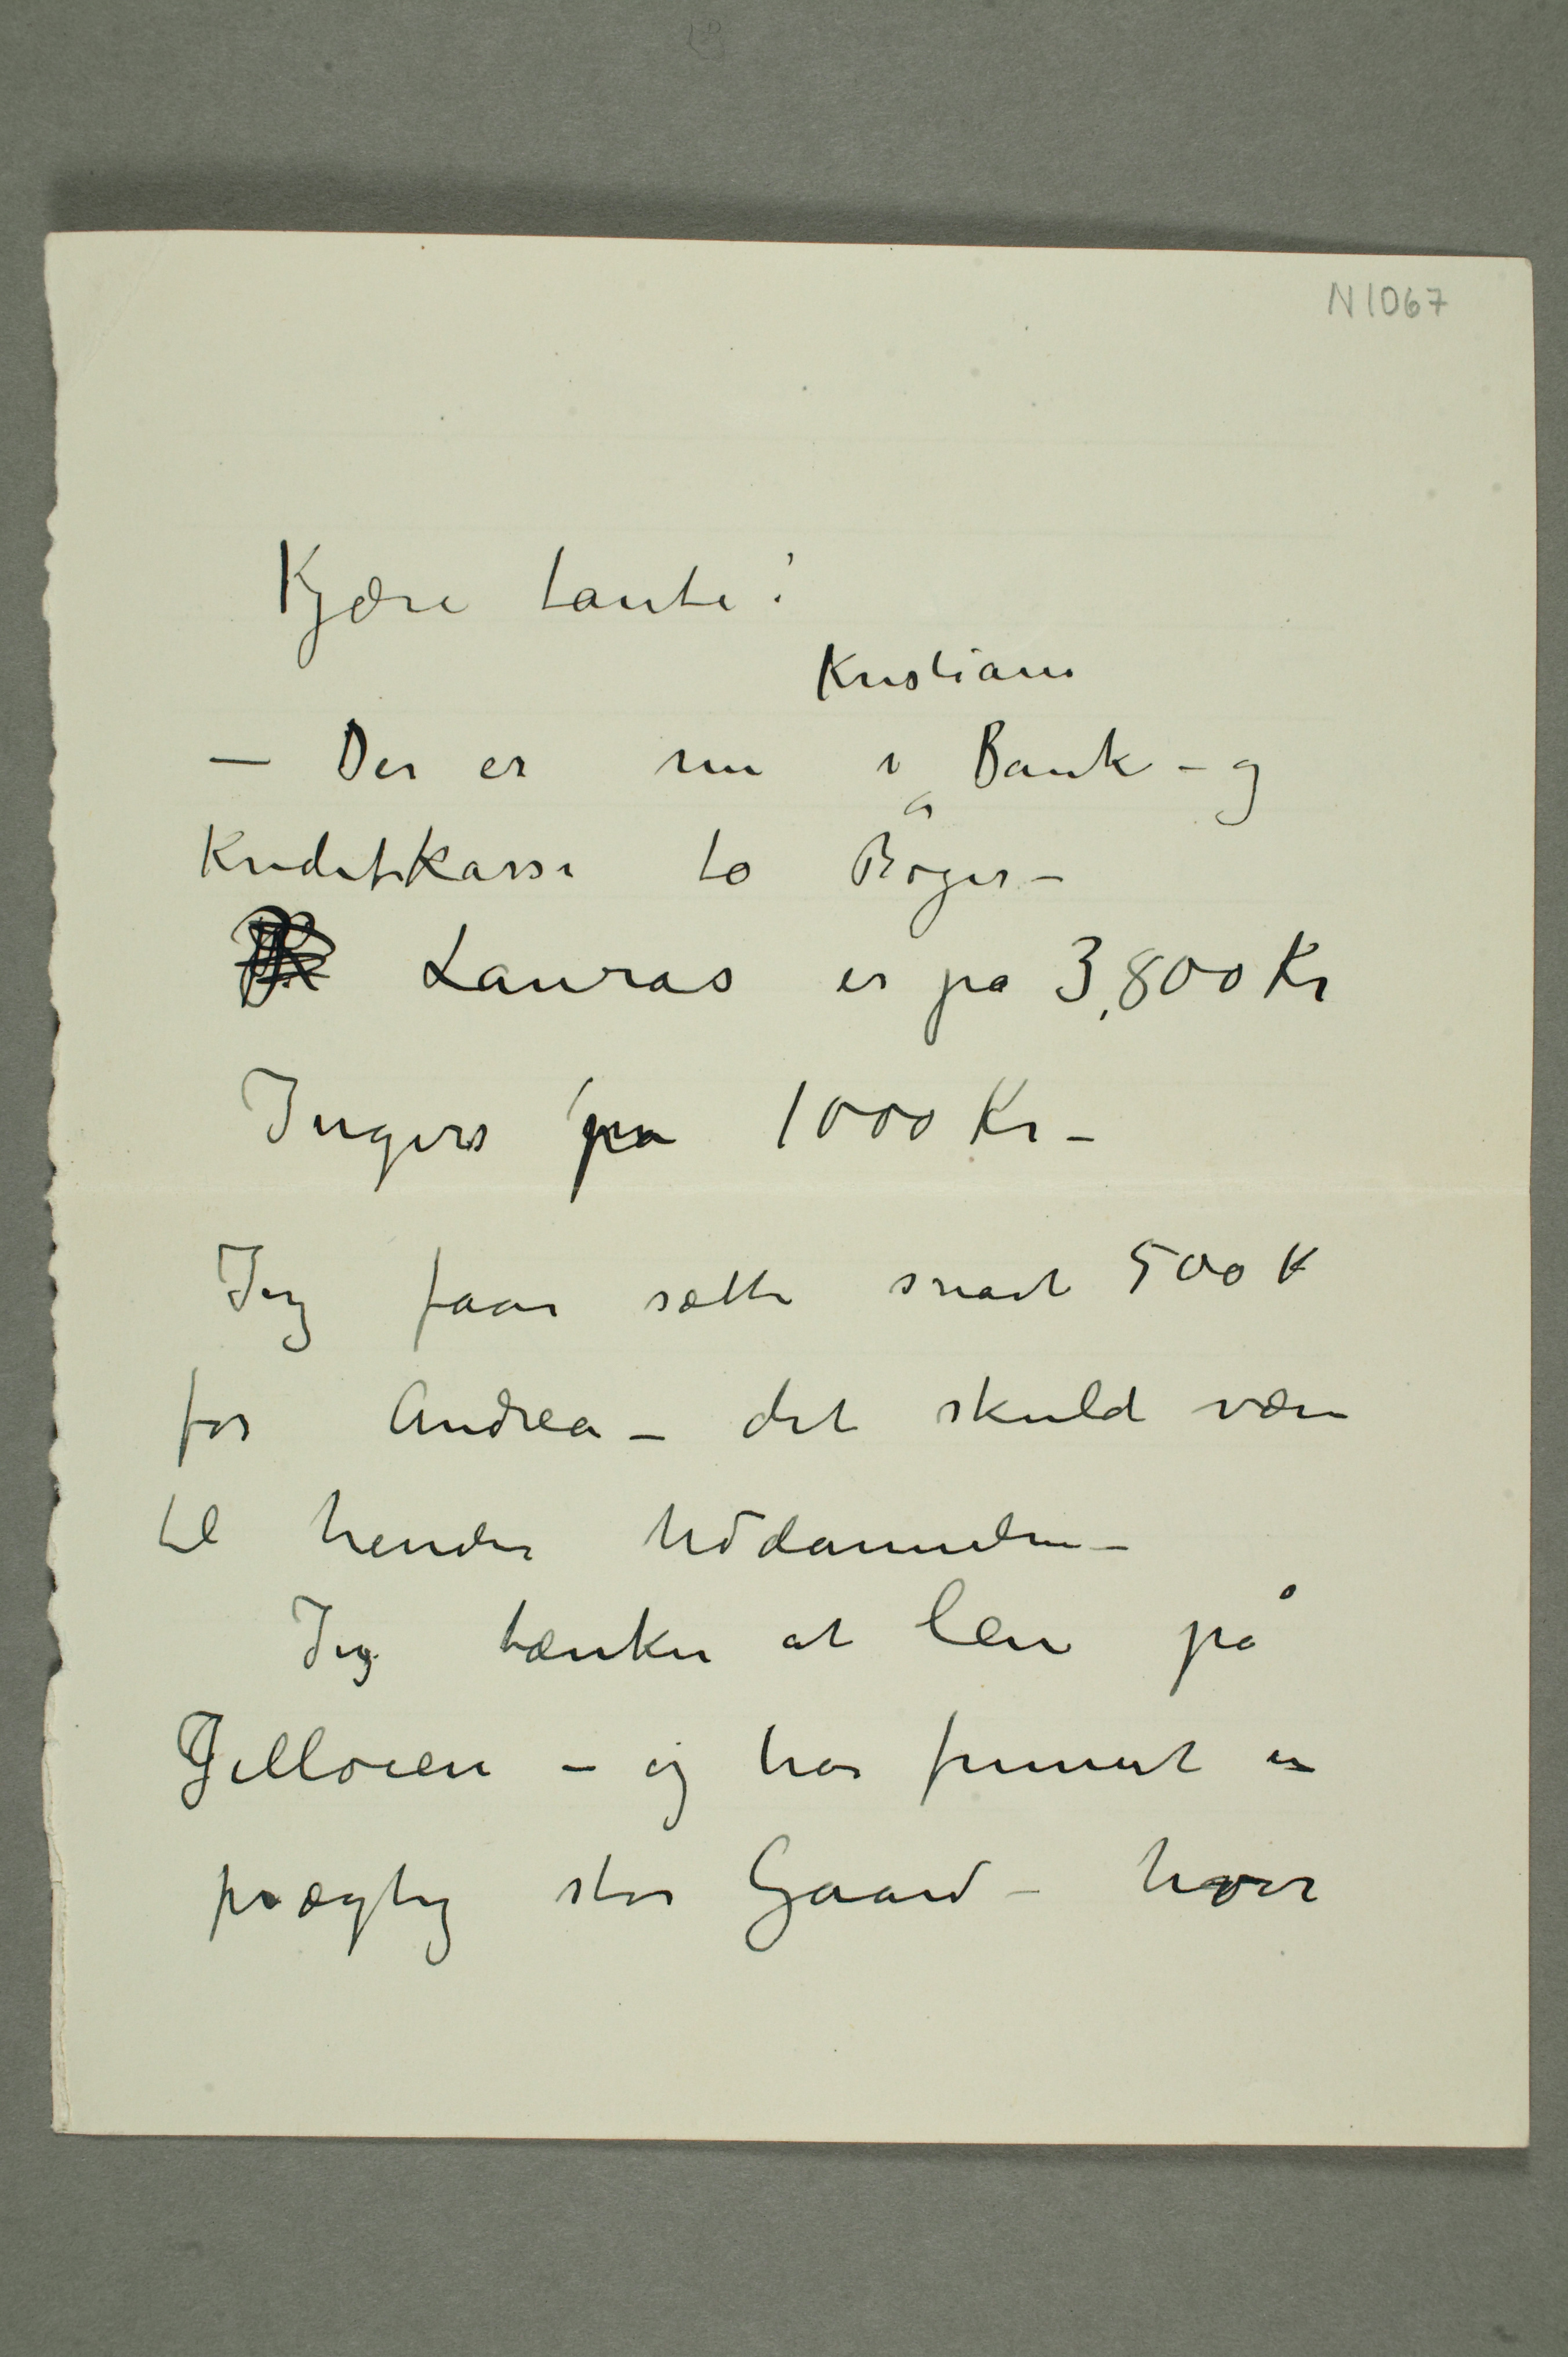 N 1067
Kjære tante!
Kristiania
— Der er nu i Bank – og
Kreditkasse to Bøger –
Lauras er på 3,800 Kr
Ingers på 1000 Kr –
Jeg faar sætte snart 500 K
for Andrea – det skuld være
til hendes Uddannelse –
Jeg tænker at leie på
Jelløien – og har funnet en
prægtig stor Gaard – hvor